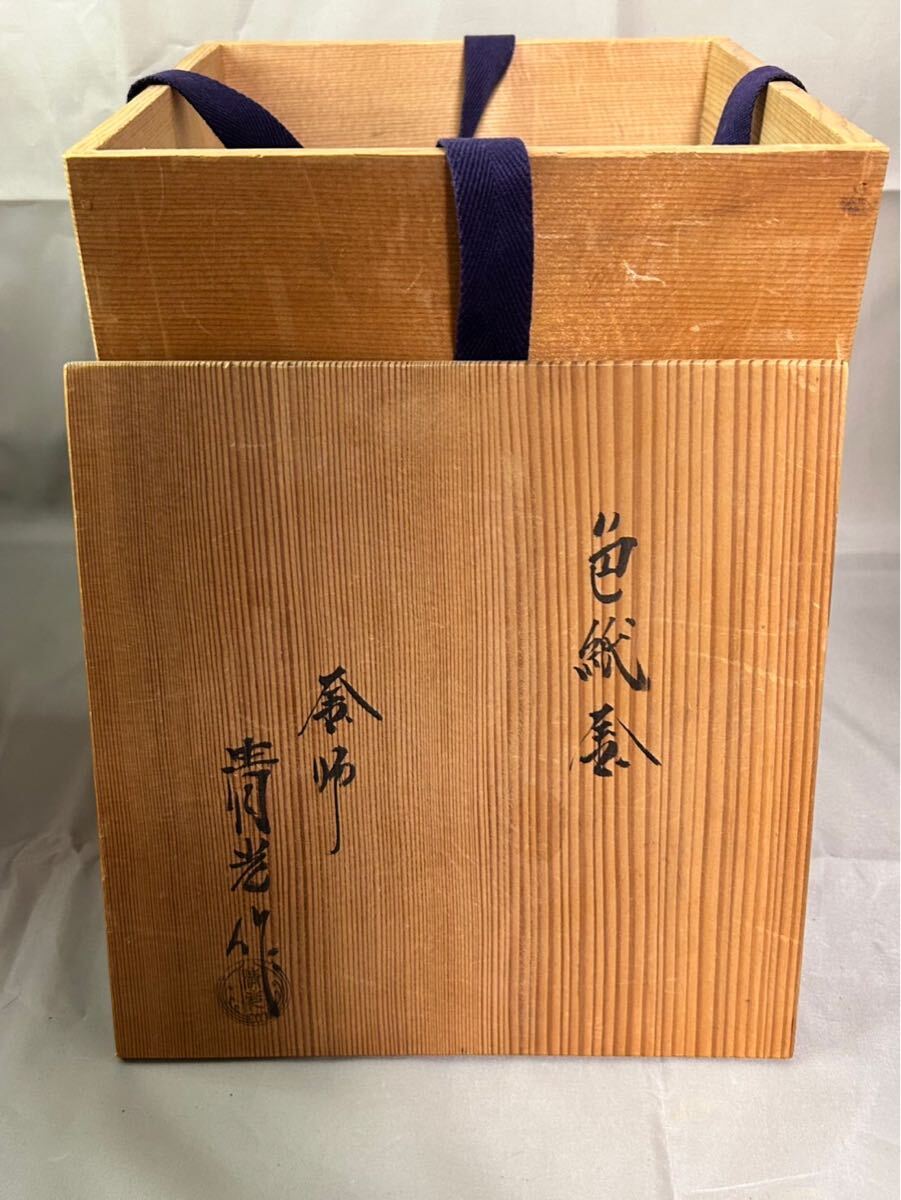 色紙釜
釜師
青光作